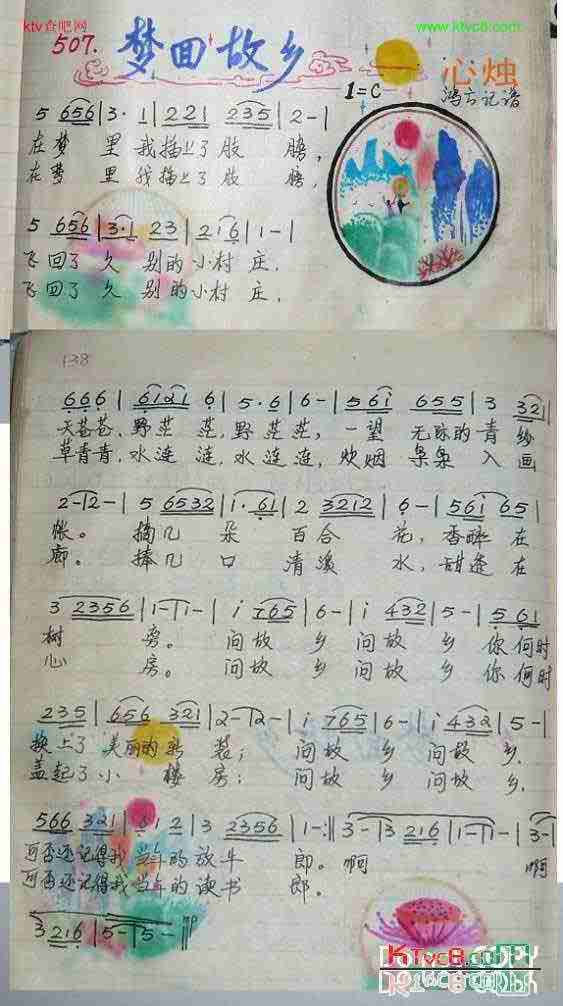 ktv查吧网
www.ktvc8.com
507. 梦回故乡
心烛
1=C 鸿云记谱
5 656 | 3· 1 | 221 235 | 2 - |
在梦 里 我插上了 肢 膀，
在梦 里 我插上了 肢 膀，
5 656 | 3·1 23 | 216 | 1 - |
飞回了 久 别的小村 庄，
飞回了 久 别的小村 庄，
138
666 | 6121 6 | 5 · 6 | 6 - | 561 655 | 3 321 |
天苍苍，野茫 茫，野茫茫，一望 无际的青纱
草青青，水涟 涟，水涟涟，炊烟 枭枭 入 画
2 - | 2 - | 5 6532 | 1· 61 | 2 3212 | 6 - | 561 65 |
帐。 摘几 朵 百合 花，香醉 在
廊。 捧几 口 清溪 水，甜透 在
3 2356 | 1 - | 1 - | i 765 | 6 - | i 432 | 5 - | 5 61 |
树 旁。 问故 乡 问故 乡 你 何时
心 房。 问故 乡 问故 乡 你 何时
235 | 656 321 | 2 - | 2 - | i 765 | 6 - | i 432 | 5 - |
换上了 美丽的新 装； 问故 乡 问故 乡.
盖起了 小 楼 房； 问故 乡 问故 乡.
566 321 | 61 2 | 3 2356 | 1 - :|| 3 - | 3 216 | 1 - | 1 - | 3 - |
可否还记得我当年的放牛 郎。啊 啊
可否还记得我当年的读书 郎。
3 216 | 5 - | 5 - ||
KTvc8.com